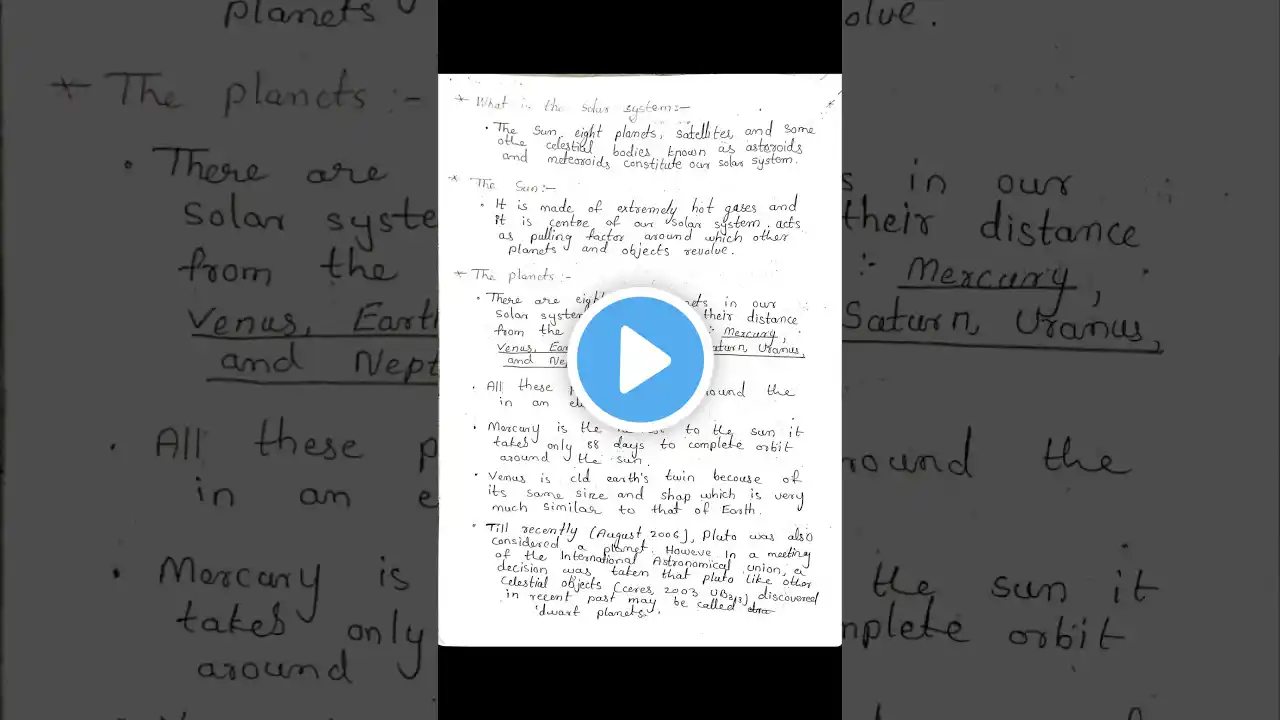 planets
* The planets :-
• There are
solar syste
from the
Venus, Earth
and Nept
• All these p
in an e
• Mercury is
takes only
around
* What is the solar system:-
• The Sun, eight planets, satellites, and some
othe celestial bodies known as asteroids
and meteoroids constitute our solar system.
* The Sun:-
• It is made of extremely hot gases and
It is centre of our solar system, acts
as pulling factor around which other
planets and objects revolve.
* The planets :-
• There are eigh ets in our
solar syste their distance
from the :- Mercury,
Venus, Ear aturn, Uranus,
and Nep
• All these ound the
in an el
• Mercury is the to the sun it
takes only 88 days to complete orbit
around the sun.
• Venus is cld earth's twin becouse of
its same size and shap which is very
much similar to that of Earth.
• Till recently (August, 2006), Pluto was also
considered a planet. Howeve In a meeting
of the International Astronomical union, a
decision was taken that pluto like other
celestial objects (ceres, 2003 UB313) discovered
in recent past may be called
'dwarf planets.'
olve.
s in our
their distance
:- Mercury,
Saturn, Uranus,
ound the
the sun it
mplete orbit